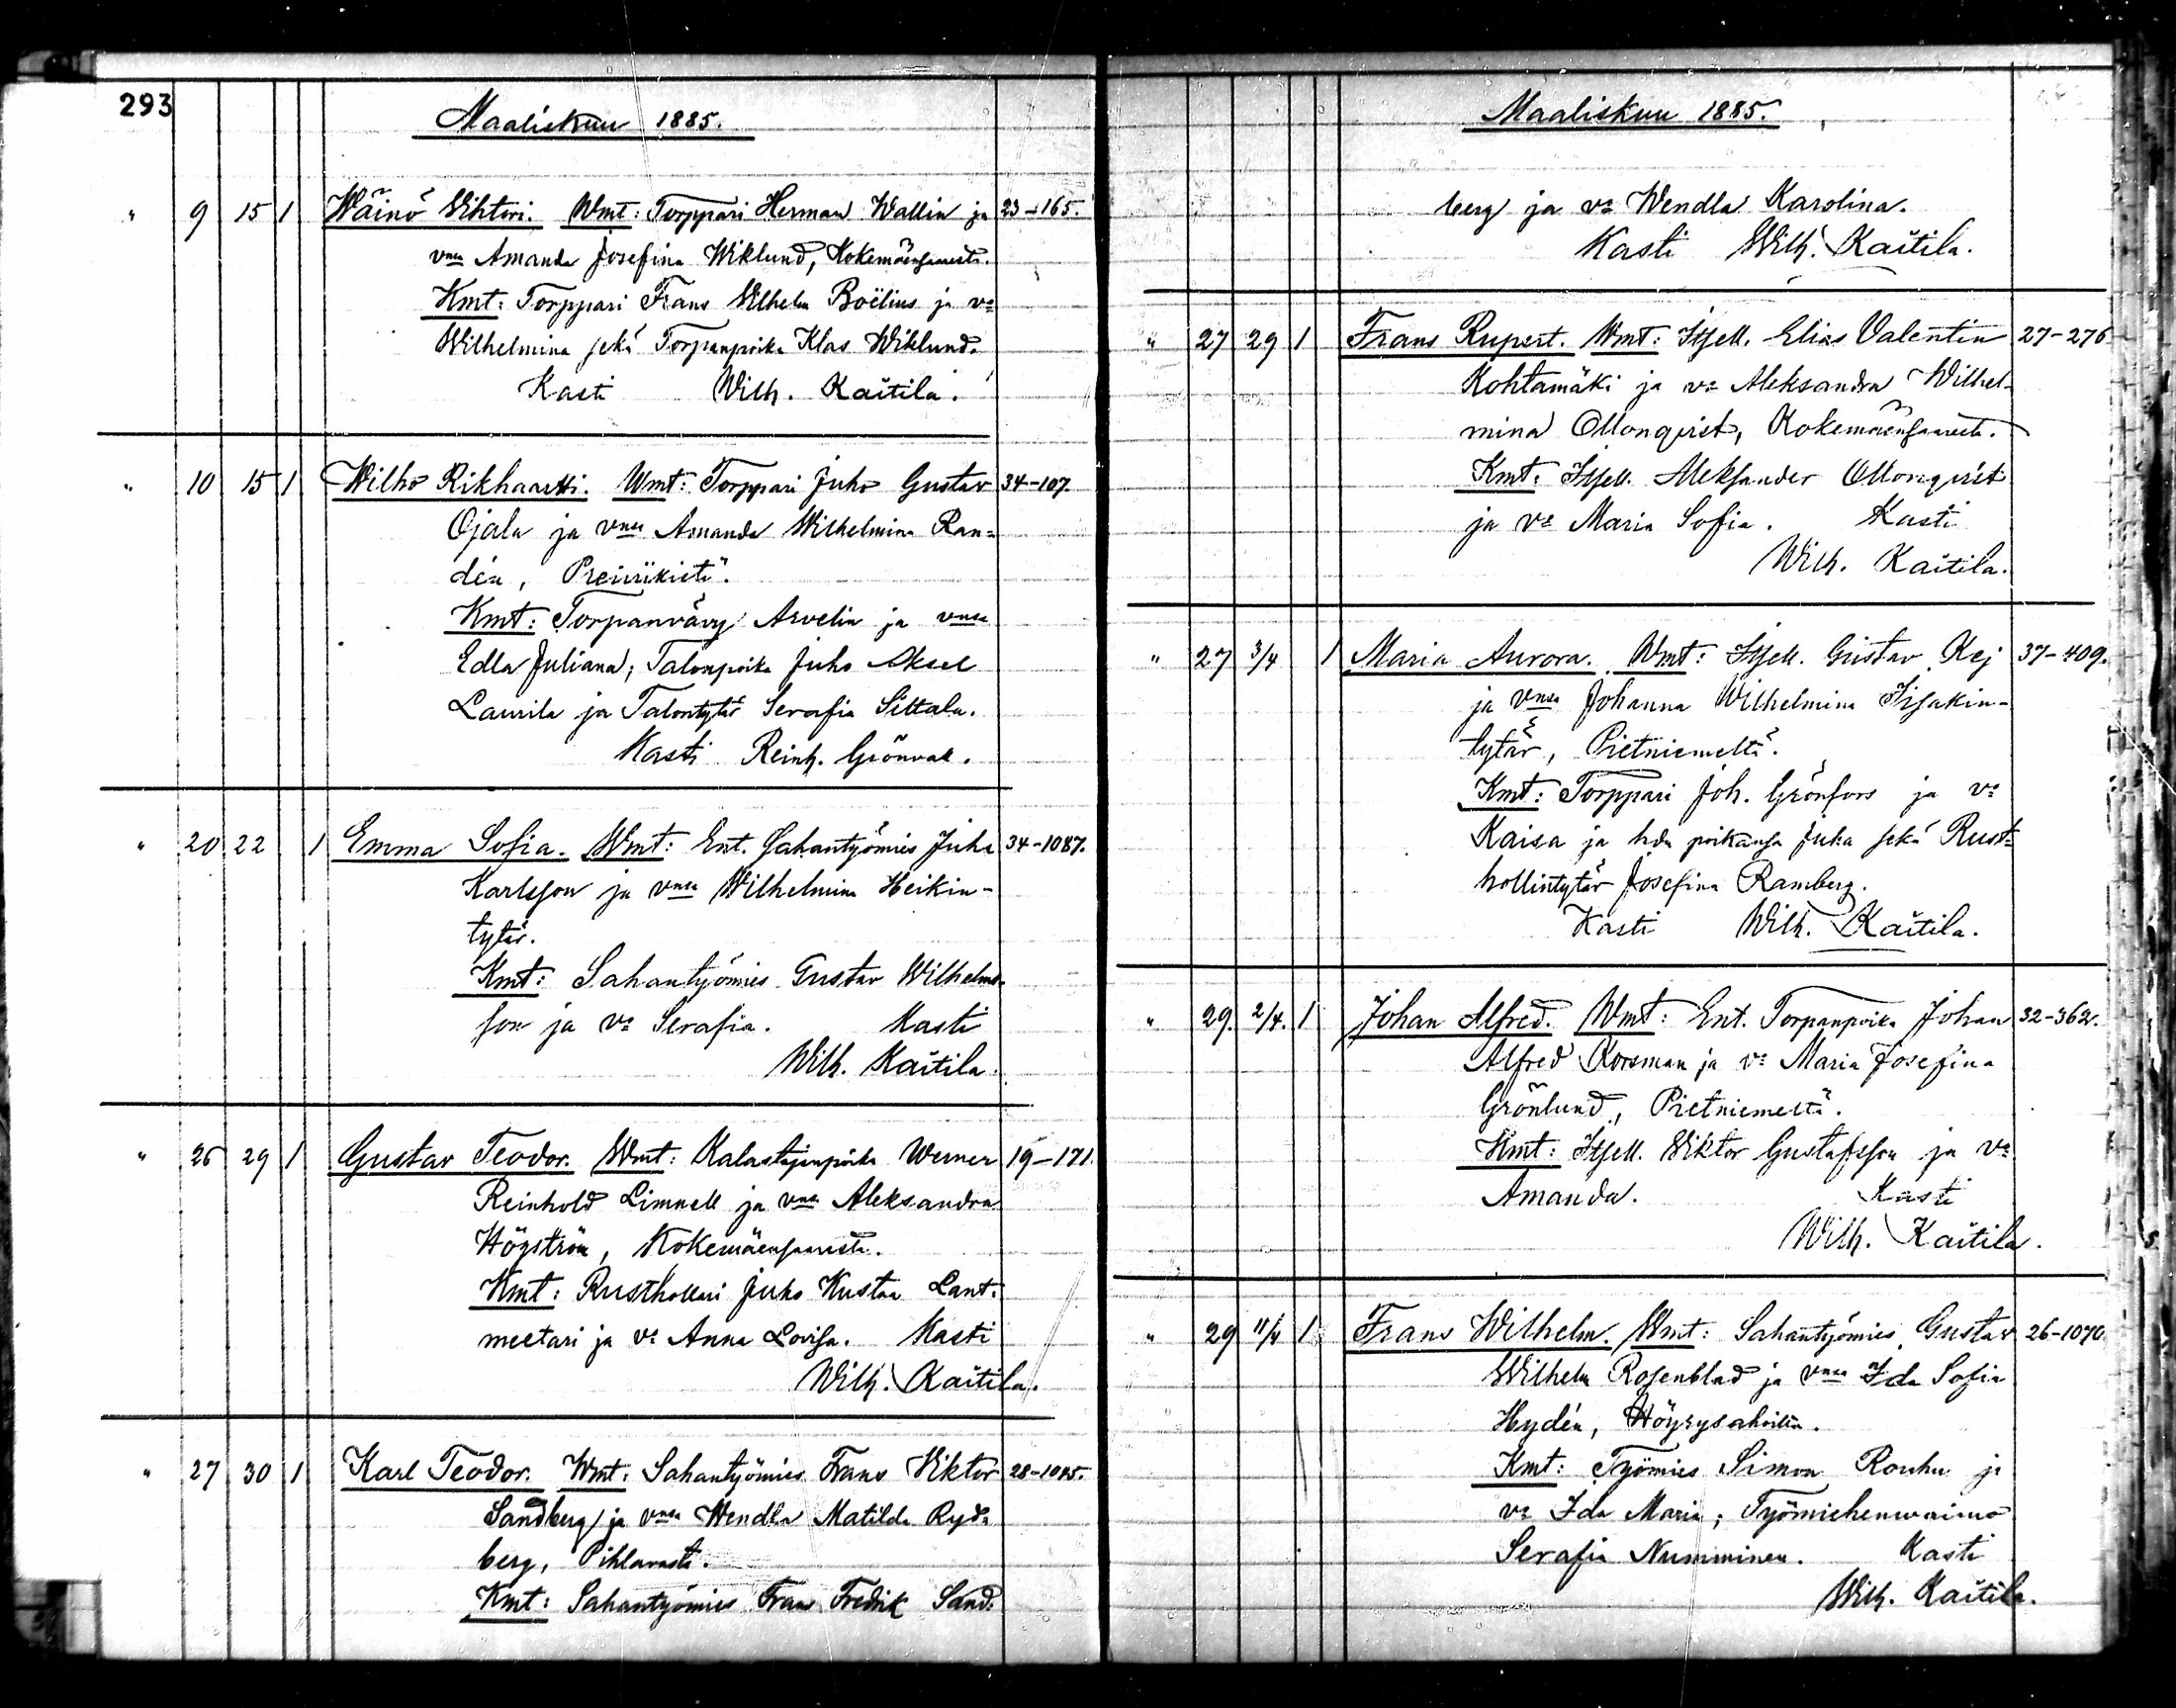 293
Maaliskuu 1885.
" 9 15 1 Wäinö Wihtori. Wmt: Torppari Herman Wallin ja 23-165.
vnsa Amanda Josefina Wiklund, Kokemäensaaresta.
Kmt: Torppari Frans Wilhelm Boëlius ja va
Wilhelmina sekä Torpanpoika Klas Wiklund.
Kasti Wilh. Kaitila.
" 10 15 1 Wilho Rikhartti. Wmt: Torppari Juho Gustav 34-107.
Ojala ja vnsa Amanda Wilhelmina Ran=
dén, Preiviikistä.
Kmt: Torpanvävy Arvelin ja vnsa
Edla Juliana; Talonpoika Juho Aksel
Laurila ja Talontytär Serafia Sittala.
Kasti Reinh. Grönval.
" 20 22 1 Emma Sofia. Wmt: Ent. Sahantyömies Juha 34-1087.
Karlsson ja vnsa Wilhelmina Heikin-
tytär.
Kmt: Sahantyömies Gustav Wilhelms-
son ja va Serafia. Kasti
Wilh. Kaitila.
" 26 29 1 Gustav Teodor. Wmt: Kalastajanpoika Werner 19-171.
Reinhold Limnell ja vnsa Aleksandra
Högström, Kokemäensaaresta.
Kmt: Rusthollari Juho Kustaa Lant=
meetari ja va Anna Lovisa. Kasti
Wilh. Kaitila.
" 27 30 1 Karl Teodor. Wmt: Sahantyömies Frans Viktor 28-1085.
Sandberg ja vnsa Wendla Matilda Ryd=
berg, Pihlavasta.
Kmt: Sahantyömies Frans Fredrik Sand=
Maaliskuu 1885.
berg ja va Wendla Karolina.
Kasti Wilh. Kaitila.
" 27 29 1 Frans Rupert. Wmt: Itsell. Elias Valentin 27-276
Kohtamäki ja va Aleksandra Wilhel-
mina Ollonqvist, Kokemäensaaresta.
Kmt: Itsell. Aleksander Ollonqvist
ja va Maria Sofia. Kasti
Wilh. Kaitila.
" 27 3/4 1 Maria Aurora. Wmt: Itsell. Gustav Kej 37-409.
ja vnsa Johanna Wilhelmina Iisakin-
tytär, Pietniemeltä.
Kmt: Torppari Joh. Grönfors ja va
Kaisa ja hdn poikansa Juha sekä Rust=
hollintytär Josefina Ramberg.
Kasti Wilh. Kaitila.
" 29. 2/4. 1 Johan Alfred. Wmt: Ent. Torpanpoika Johan 32-362.
Alfred Korsman ja va Maria Josefina
Grönlund, Pietniemeltä.
Kmt: Itsell. Viktor Gustafsson ja va
Amanda. Kasti
Wilh. Kaitila.
" 29 11/4 1 Frans Wilhelm. Wmt: Sahantyömies Gustav 26-1070.
Wilhelm Rosenblad ja vnsa Ida Sofia
Hydén, Höyrysahoilta.
Kmt: Työmies Simon Rouhu ja
va Ida Maria; Työmiehenwaimo
Serafia Numminen. Kasti
Wilh. Kaitila.